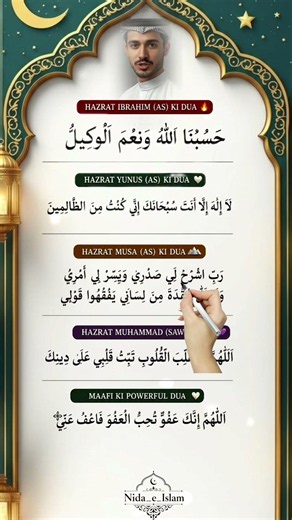 HAZRAT IBRAHIM (AS) KI DUA 🔥
حَسْبُنَا اللهُ وَنِعْمَ الْوَكِيلُ
HAZRAT YUNUS (AS) KI DUA 🤍
لَا إِلٰهَ إِلَّا أَنتَ سُبْحَانَكَ إِنِّي كُنْتُ مِنَ الظَّالِمِينَ
HAZRAT MUSA (AS) KI DUA
رَبِّ اشْرَحْ لِي صَدْرِي وَيَسِّرْ لِي أَمْرِي
مِنْ لِسَانِي يَفْقَهُوا قَوْلِي
HAZRAT MUHAMMAD (SAW)
قَلْبِي عَلَىٰ دِينِكَ الْقُلُوبِ ثَبِّتْ
MAAFI KI POWERFUL DUA 🤍
اَللّٰهُمَّ إِنَّكَ عَفُوٌّ تُحِبُّ الْعَفْوَ فَاعْفُ عَنِّي
Nida_e_Islam